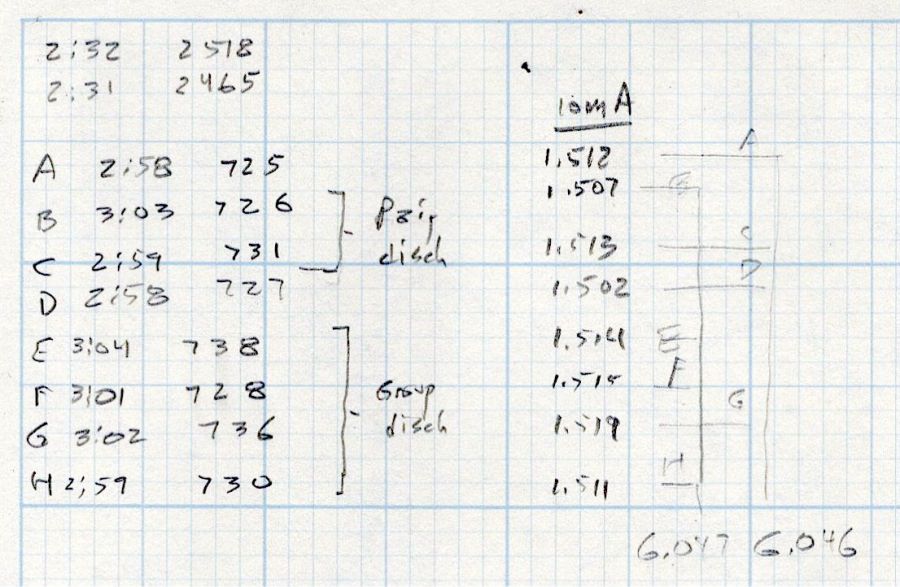 2:32 2518
2:31 2465
10mA
A 2:58 725 1.512 A
B 3:03 726 1.507
Pair
disch
C 2:59 731 1.513 C
D 2:58 727 1.502 D
E 3:04 738 1.514 E
F 3:01 728 1.515 F
Group
disch
G 3:02 736 1.519 G
H 2:59 730 1.511 H
6.047 6.046